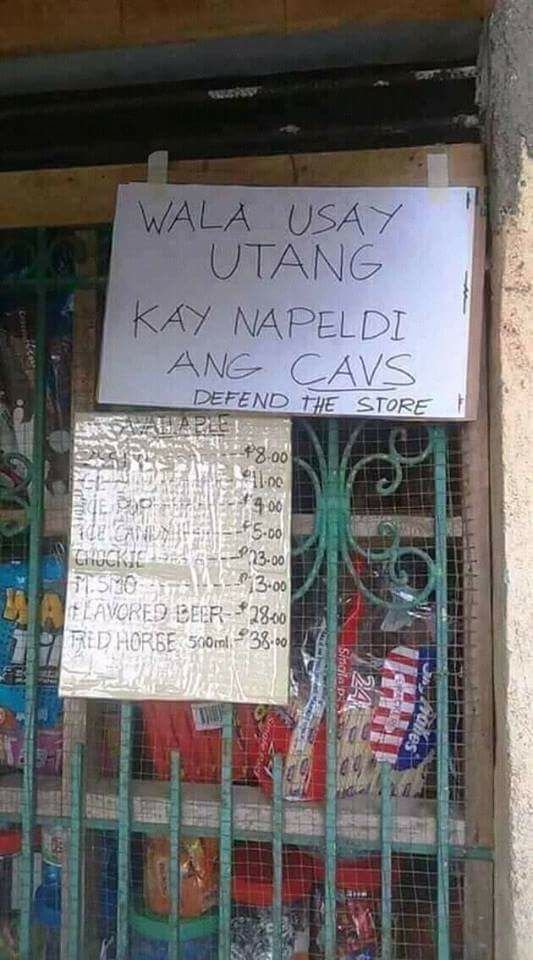 WALA USAY
UTANG
KAY NAPELDI
ANG CAVS
DEFEND THE STORE
AVAILABLE
₱8.00
₱11.00
ICE POP ₱4.00
ICE CANDY ₱5.00
CHUCKIE ₱23.00
₱13.00
FLAVORED BEER-- ₱28.00
RED HORSE 500ml.- ₱38.00
24